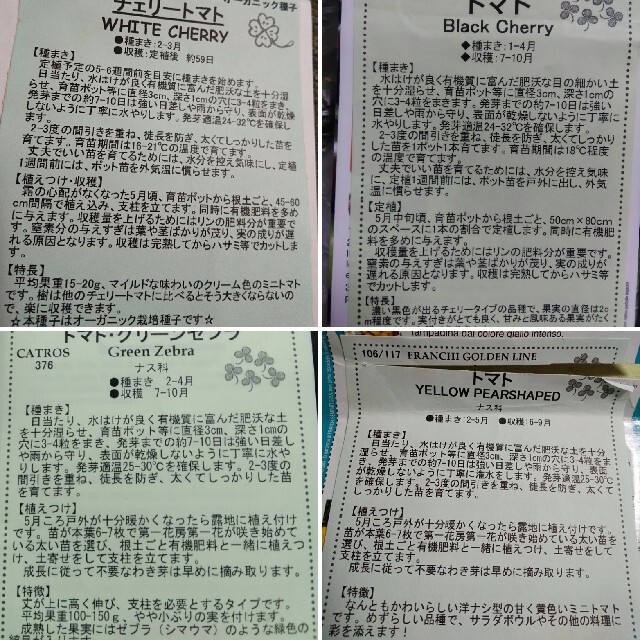 オーガニック種子
チェリートマト
WHITE CHERRY
●種まき:2-3月
●収穫:定植後 約59日
【種まき】
定植予定の5-6週間前を目安に種まきを始めます。
日当たり、水はけが良く有機質に富んだ肥沃な土を十分湿
らせ、育苗ポット等に直径3cm、深さ1cmの穴に3-4粒をまき、
発芽までの約7-10日は強い日差しや雨から守り、表面が乾燥
しないように丁寧に水やりします。発芽適温24-32℃を確保し
ます。
2-3度の間引きを重ね、徒長を防ぎ、太くてしっかりした苗を
育てます。育苗期間は16-21℃の温度で育てます。
丈夫でいい苗を育てるためには、水分を控え気味にし、定植
1週間前には、ポット苗を外気温に慣らせます。
【植えつけ・収穫】
霜の心配がなくなった5月頃、育苗ポットから根土ごと、45-60
cm間隔で植え込み、支柱を立てます。同時に有機肥料を多め
に与えます。収穫量を上げるためにはリンの肥料分が重要で
す。窒素分の与えすぎは葉や茎ばかりが茂り、実の成りが遅
れる原因となります。収穫は完熟してからハサミ等でカットしま
す。
【特長】
平均果重15-20g、マイルドな味わいのクリーム色のミニトマト
です。樹は他のチェリートマトに比べるとそう大きくならないの
で、楽に収穫できます。
☆本種子はオーガニック栽培種子です☆
トマト
Black Cherry
◆種まき:1-4月
◆収穫:7-10月
【種まき】
水はけが良く有機質に富んだ肥沃な目の細かい土
を十分湿らせ、育苗ポット等に直径3cm、深さ1cmの
穴に3-4粒をまきます。発芽までの約7-10日は強い
日差しや雨から守り、表面が乾燥しないように丁寧に
水やりします。発芽適温24-32℃を確保します。
2-3度の間引きを重ね、徒長を防ぎ、太くてしっかり
した苗を1ポット1本育てます。育苗期間は18℃程度
の温度で育てます。
丈夫でいい苗を育てるためには、水分を控え気味
にし、定植1週間前には、ポット苗を戸外に出し、外気
温に慣らせます。
【定植】
5月中旬頃、育苗ポットから根土ごと、50cm×80cm
のスペースに1本の割合で定植します。同時に有機肥
料を多めに与えます。
収穫量を上げるためにはリンの肥料分が重要です。
窒素の与えすぎは葉や茎ばかりが茂り、実の成りが
遅れる原因となります。収穫は完熟してからハサミ等
でカットします。
【特長】
濃い黒色が出るチェリータイプの品種で、果実の直径は2c
m程度です。実付きがとても良く、甘みと風味ある果実がたく
トマト・グリーンゼブラ
CATROS
376
Green Zebra
ナス科
●種まき: 2-4月
●収穫: 7-10月
【種まき】
日当たり、水はけが良く有機質に富んだ肥沃な土
を十分湿らせ、育苗ポット等に直径3cm、深さ1cmの
穴に3-4粒をまき、発芽までの約7-10日は強い日差
しや雨から守り、表面が乾燥しないように丁寧に水や
りします。発芽適温25-30℃を確保します。2-3度の
間引きを重ね、徒長を防ぎ、太くてしっかりした苗
を育てます。
【植えつけ】
5月ころ戸外が十分暖かくなったら露地に植え付け
です。苗が本葉6-7枚で第一花房第一花が咲き始めて
いる太い苗を選び、根土ごと有機肥料と一緒に植えつ
け、土寄せをして支柱を立てます。
成長に従って不要なわき芽は早めに摘み取ります。
【特徴】
丈が上に高く伸び、支柱を必要とするタイプです。
平均果重100-150g、やや小ぶりの実を付けます。
成熟した果実にはゼブラ(シマウマ)のような緑色の
tampadina dal colore giallo intenso.
106/117 FRANCHI GOLDEN LINE
トマト
YELLOW PEARSHAPED
ナス科
●種まき:2-5月 ●収穫:6-9月
【種まき】
日当たり、水はけが良く有機質に富んだ肥沃な土を十分
湿らせ、育苗ポット等に直径3cm、深さ1cmの穴に3-4粒をま
き、発芽までの約7-10日は強い日差しや雨から守り、表面
が乾燥しないように丁寧に灌水をします。発芽適温25-30℃
を確保します。2-3度の間引きを重ね、徒長を防ぎ、太くて
しっかりした苗を育てます。
【植えつけ】
5月ころ戸外が十分暖かくなったら露地に植え付けです。
苗が本葉6-7枚で第一花房第一花が咲き始めている太い苗
を選び、根土ごと有機肥料と一緒に植えつけ、土寄せをし
て支柱を立てます。
成長に従って不要なわき芽は早めに摘み取ります。
【特徴】
なんともかわいらしい洋ナシ型の甘く黄色いミニトマト
です。めずらしい品種で、サラダボウルやその他の料理に
彩を添えます!